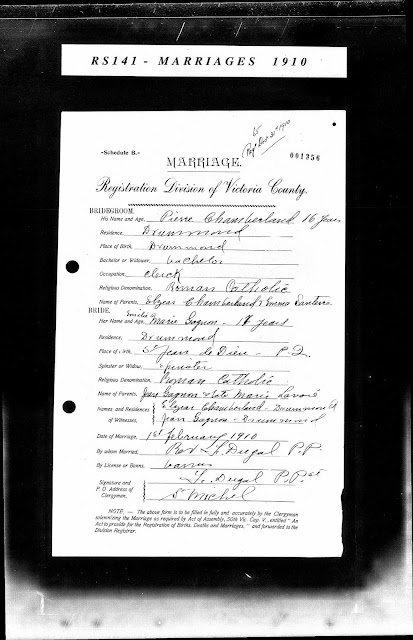 RS141 - MARRIAGES 1910
15
Regd Dec 31st 1910
001356
-Schedule B.-
MARRIAGE.
Registration Division of Victoria County.
BRIDEGROOM.
His Name and Age, Pierre Chamberland 16 years
Residence, Drummond
Place of Birth, Drummond
Bachelor or Widower, bachelor
Occupation, clerk
Religious Denomination, Roman Catholic
Name of Parents, Elzear Chamberland & Emma Santerre
BRIDE. Emélie
Her Name and Age, Marie Gagnon - years
Residence, Drummond
Place of birth, St Jean de Dieu - P.Q.
Spinster or Widow, spinster
Religious Denomination, Roman Catholic
Name of Parents, Jean Gagnon & Marie Lavoie
Names and Residences of Witnesses, Elzear Chamberland - Drummond
Jean Gagnon - Drummond
Date of Marriage, 1st February 1910
By whom Married, Rev Ls. Dugal P.P.
By License or Banns, banns
Signature and P.O. Address of Clergyman, Ls. Dugal P.P.
St Michel
NOTE. — The above form is to be filled in fully and accurately by the Clergyman
solemnizing the Marriage as required by Act of Assembly, 50th Vic. Cap. V., entitled "An
Act to provide for the Registration of Births, Deaths and Marriages," and forwarded to the
Division Registrar.